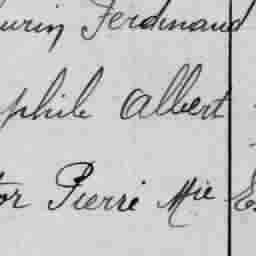 urin Ferdinand
phile Albert
tor Pierre Mie